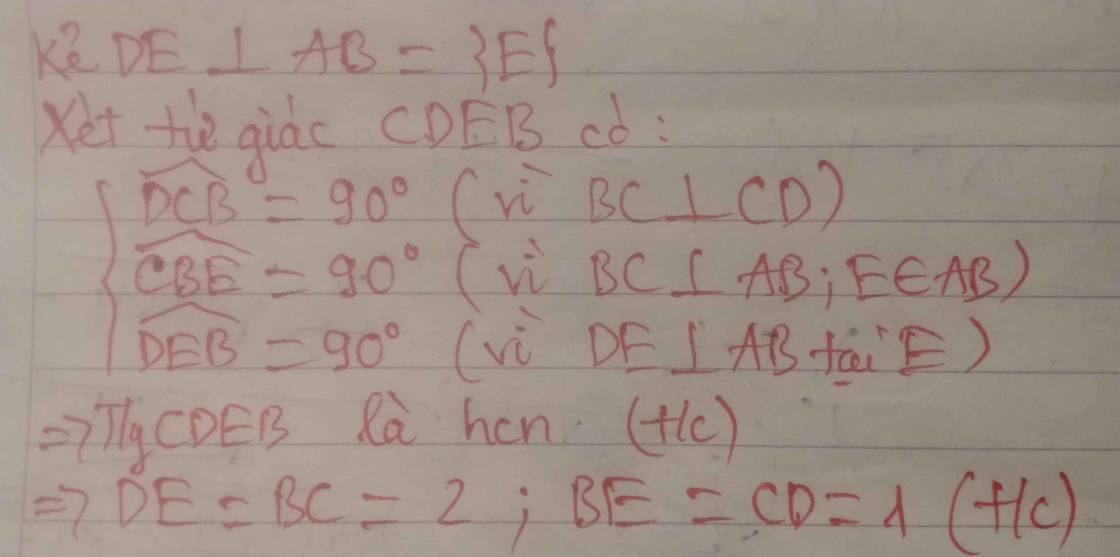 Kẻ DE ⊥ AB = {E}
Xét tứ giác CDEB có:
{ \widehat{DCB} = 90° (vì BC ⊥ CD)
\widehat{CBE} = 90° (vì BC ⊥ AB; E∈AB)
\widehat{DEB} = 90° (vì DE ⊥ AB tại E)
=> T/g CDEB là hcn (t/c)
=> DE = BC = 2 ; BE = CD = 1 (t/c)